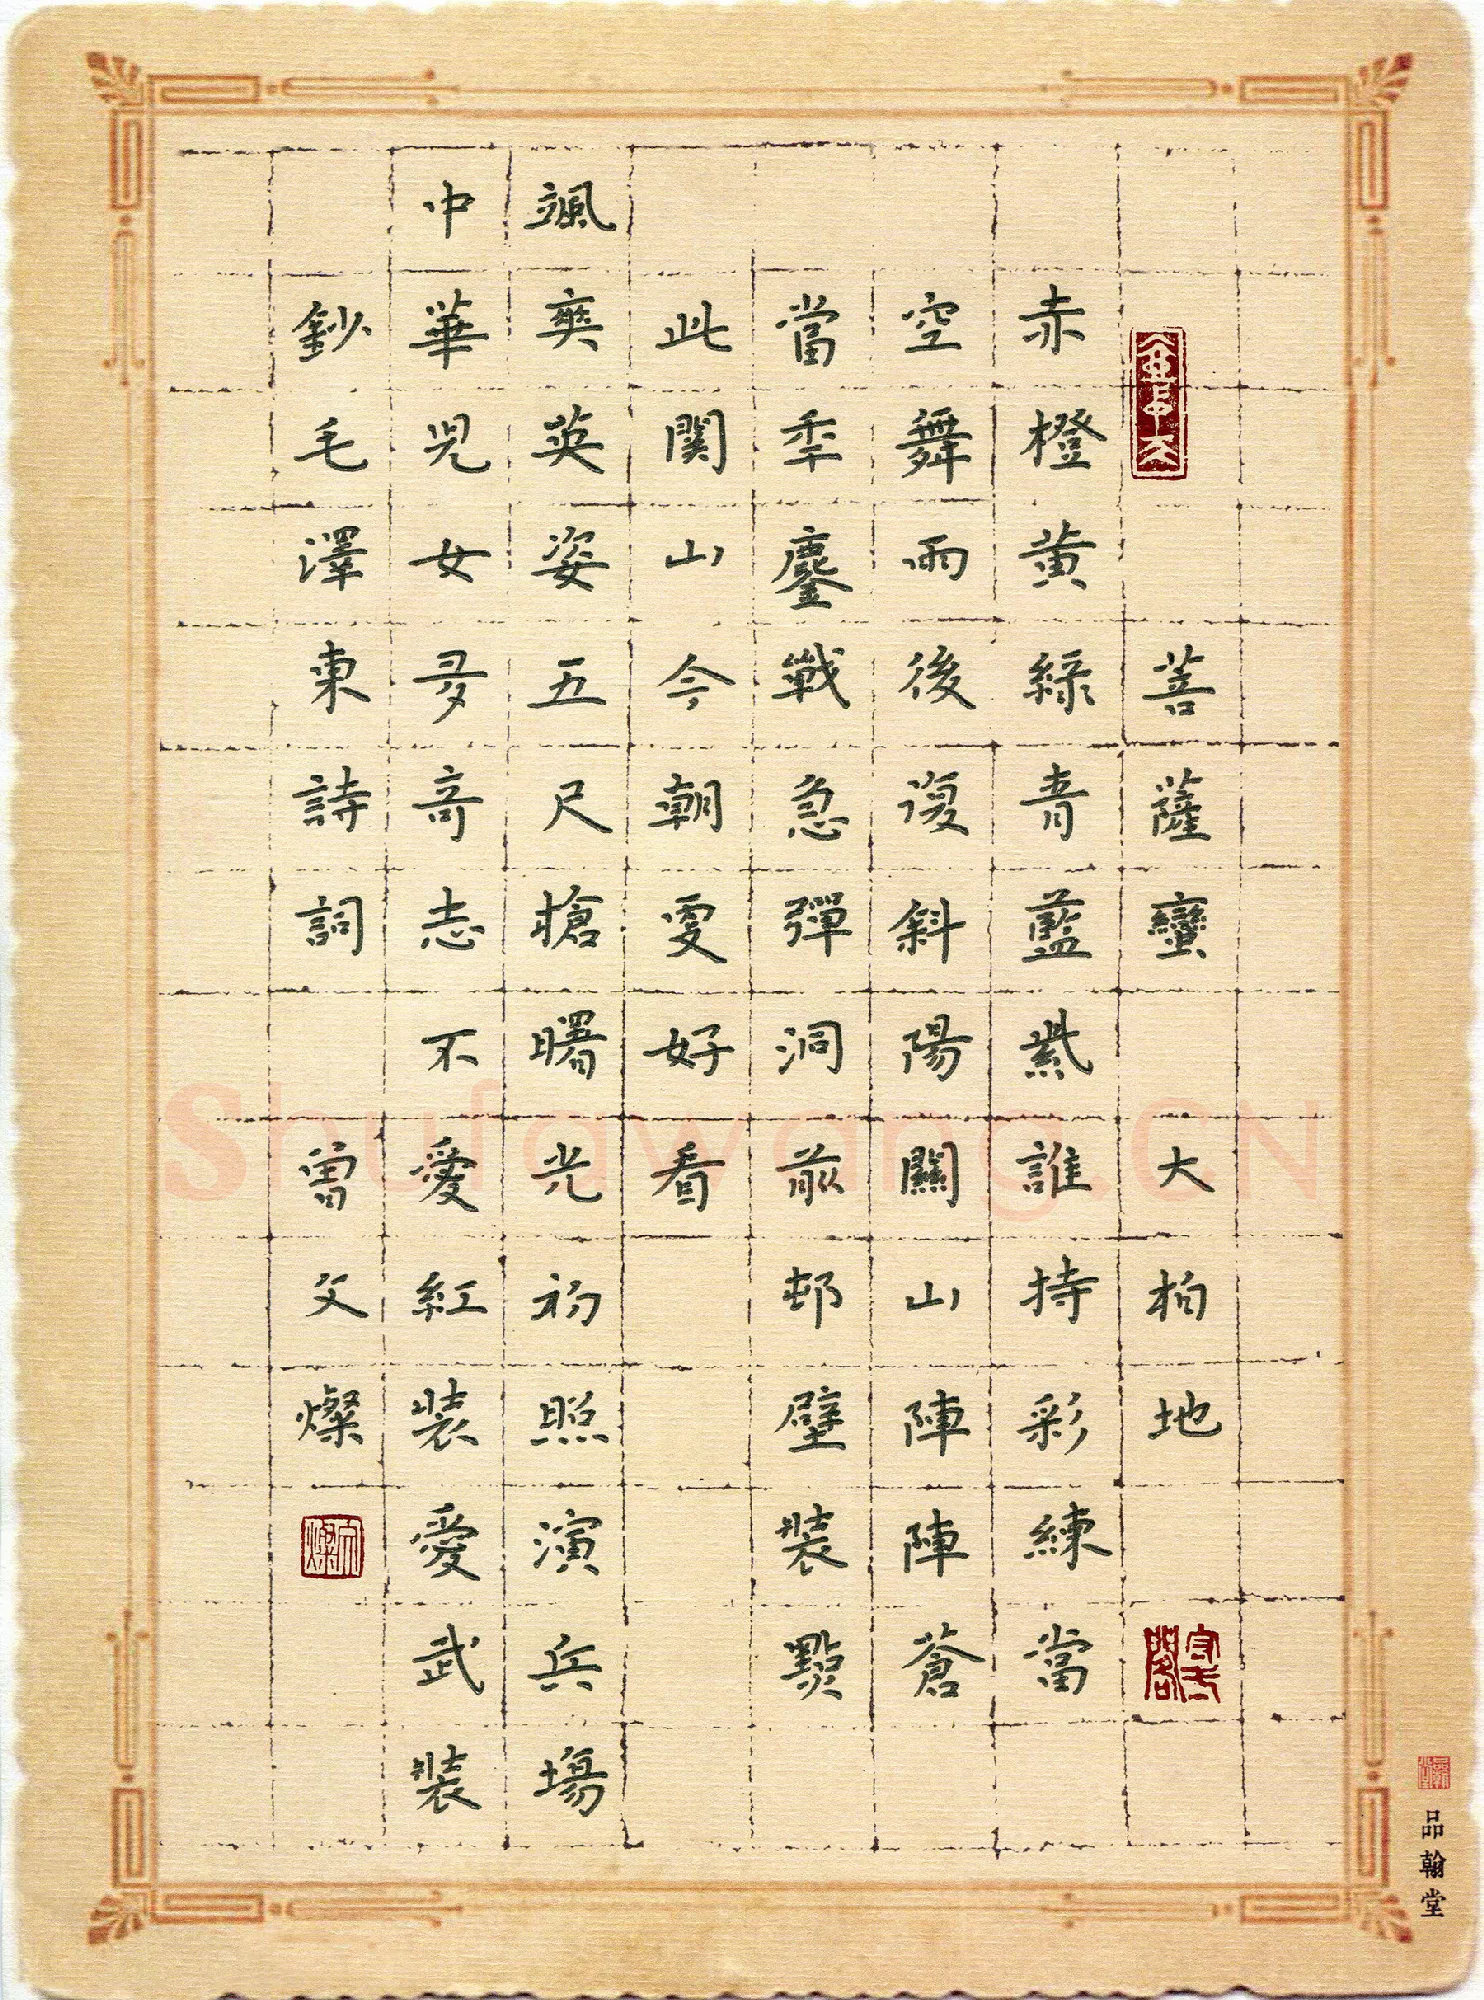 菩薩蠻 大柏地
赤橙黄緑青藍紫誰持彩練當
空舞雨後復斜陽關山陣陣蒼
當年鏖戰急彈洞前邨壁裝點
此関山今朝更好看
颯爽英姿五尺槍曙光初照演兵場
中華児女多奇志不愛紅装愛武装
鈔毛澤東詩詞 曾父燦
品翰堂
Shufawang.CN